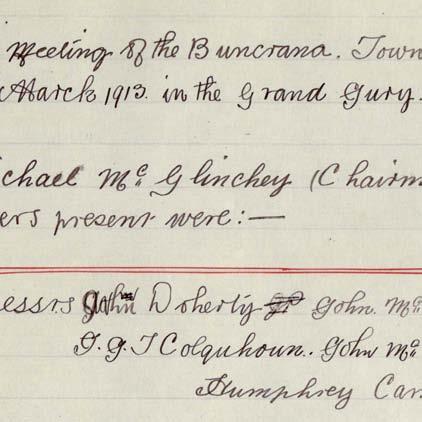 Meeting of the Buncrana. Town
March 1913. in the Grand Gury.
ichael Mc Glinchey (Chairm
ers present were:—
essrs John Doherty John. Mc
G. G. T Colquhoun. John Mc
Humphrey Car